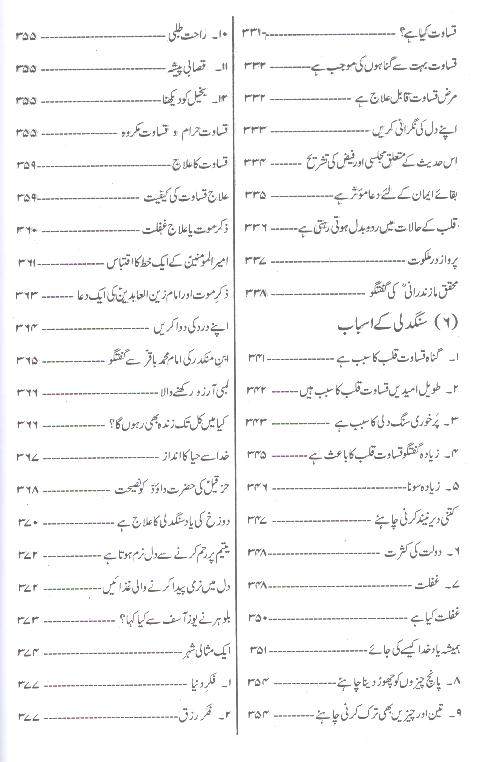 قساوت کیا ہے؟ ۳۳۱
قساوت بہت سے گناہوں کی موجب ہے ۳۳۲
مرض قساوت قابل علاج ہے ۳۳۲
اپنے دل کی نگرانی کریں ۳۳۳
اس حدیث کے متعلق مجلسی اور فیض کی تشریح ۳۳۴
بقائے ایمان کے لئے دعا مؤثر ہے ۳۳۵
قلب کے حالات میں ردوبدل ہوتی رہتی ہے ۳۳۶
پرواز در ملکوت ۳۳۷
محقق مازندرانی کی گفتگو ۳۳۸
(۶) سنگدلی کے اسباب
۱۔ گناہ قساوت قلب کا سبب ہے ۳۴۱
۲۔ طویل امیدیں قساوت قلب کا سبب ہیں ۳۴۲
۳۔ پُرخوری سنگ دلی کا سبب ہے ۳۴۳
۴۔ زیادہ گفتگو قساوت قلب کا باعث ہے ۳۴۵
۵۔ زیادہ سونا ۳۴۶
کتنی دیر نیند کرنی چاہئے ۳۴۷
۶۔ دولت کی کثرت ۳۴۸
۷۔ غفلت ۳۴۸
غفلت کیا ہے ۳۵۰
ہمیشہ یاد خدا کیسے کی جائے ۳۵۱
۸۔ پانچ چیزوں کو چھوڑ دینا چاہئے ۳۵۴
۹۔ تین اور چیزیں بھی ترک کرنی چاہئے ۳۵۴
۱۰۔ راحت طلبی ۳۵۵
۱۱۔ قصابی پیشہ ۳۵۵
۱۲۔ بخیل کو دیکھنا ۳۵۵
قساوت حرام و قساوت مکروہ ۳۵۵
قساوت کا علاج ۳۵۹
علاج قساوت کی کیفیت ۳۵۹
ذکر موت یا علاج غفلت ۳۶۰
امیر المؤمنینؑ کے ایک خط کا اقتباس ۳۶۱
ذکر موت اور امام زین العابدینؑ کی ایک دعا ۳۶۳
اپنے درد کی دوا کریں ۳۶۴
ابن منکدر کی امام محمد باقرؑ سے گفتگو ۳۶۵
لمبی آرزو رکھنے والا ۳۶۶
کیا میں کل تک زندہ بھی رہوں گا؟ ۳۶۶
خدا سے حیا کا انداز ۳۶۷
حزقیلؑ کی حضرت داؤدؑ کو نصیحت ۳۶۸
دوزخ کی یاد سنگدلی کا علاج ہے ۳۷۰
یتیم پر رحم کرنے سے دل نرم ہوتا ہے ۳۷۲
دل میں نرمی پیدا کرنے والی غذائیں ۳۷۲
بلوہر نے یوزآسف سے کیا کہا؟ ۳۷۳
ایک مثالی شہر ۳۷۴
۱۔ فکر دنیا ۳۷۷
۲۔ فکر رزق ۳۷۷